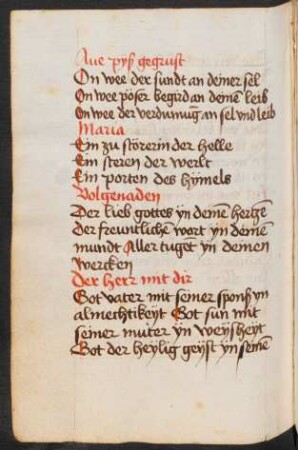 Aue pyß gegrust
On wee der sundt an deiner sel
On wee poser begird an deinē leib
On wee der verdumūg an sel vnd leib
Maria
Ein zu störerin der helle
Ein steren der werlt
Ein porten des hymels
Volgenaden
Der lieb gottes yn deinē hertzē
Der freuntliche wort yn deinē
mundt Aller tugēt yn deinen
wercken
Der herr mit dir
Got vater mit seiner sponß yn
almechtikeyt Got sun mit
seiner muter yn weysheyt
Got der heylig geyst yn seinē